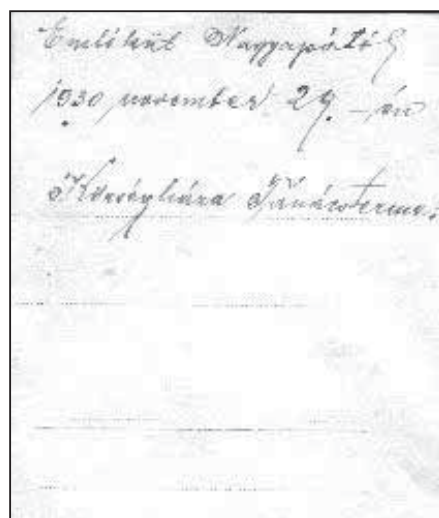 Emlékül Nagyapától
1930 november 29.-én
Községháza Tanácsterme.